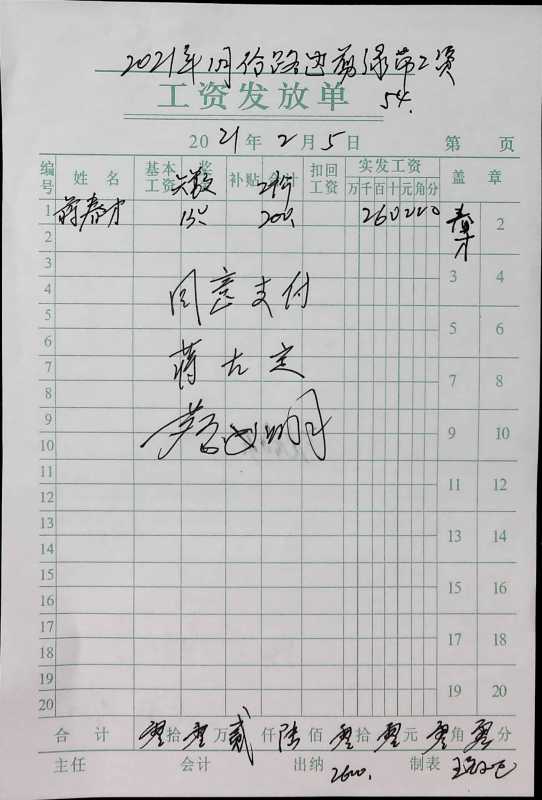 2021年1月份路边剪绿带工资
工资发放单
54.
2021年2月5日 第 页
编号 姓名 基本工资 奖 补贴 合计 扣回工资 实发工资 盖章
天数 单价
万千百十元角分
1 蒋春才 13天 200. 260000 春才 2
2
3 3 4
4
同意支付
5 5 6
6
7 蒋古定 7 8
8
9 9 10
10
11 11 12
12
13 13 14
14
15 15 16
16
17 17 18
18
19 19 20
20
合计 零拾零万贰仟陆佰零拾零元零角零分
主任 会计 出纳 制表
2600.